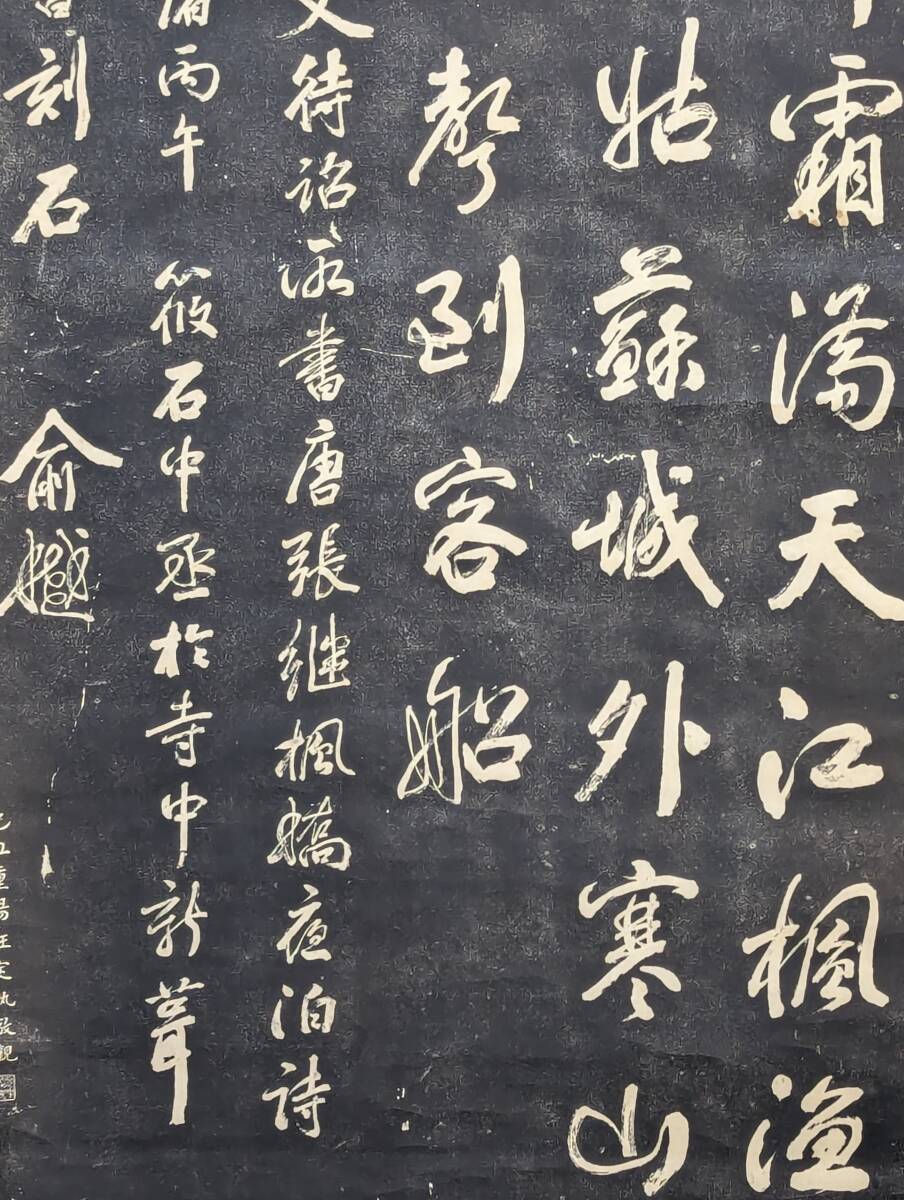 霜滿天江楓漁
姑蘇城外寒山
聲到客船
文待詔所書唐張繼楓橋夜泊詩
丙午筱石中丞於寺中新葺
刻石俞樾
重陽汪定執敬觀